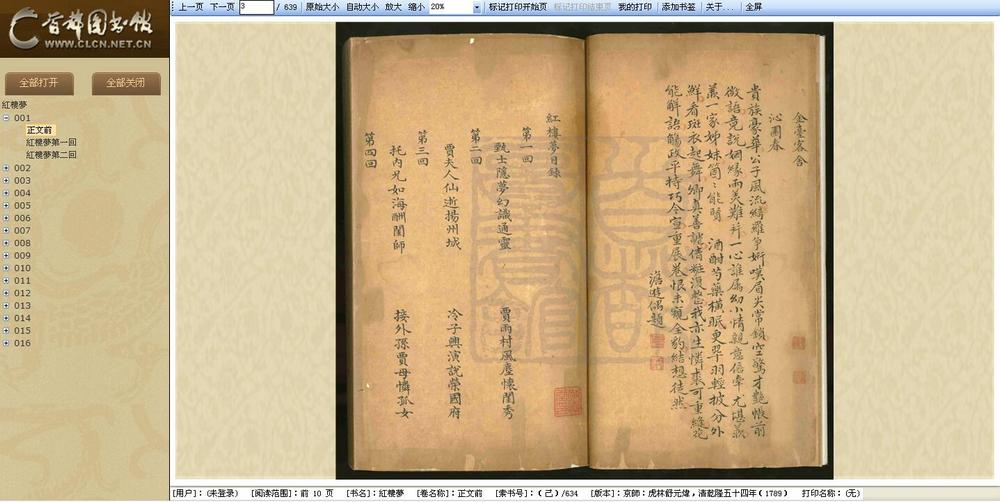 首都图书馆
WWW.CLCN.NET.CN
全部打开
全部关闭
上一页
下一页
3
/ 639
原始大小
自动大小
放大
缩小
20%
标记打印开始页
标记打印结束页
我的打印
添加书签
关于...
全屏
紅樓夢
001
正文前
紅樓夢第一回
紅樓夢第二回
002
003
004
005
006
007
008
009
010
011
012
013
014
015
016
沁園春
貴族豪華公子風流綺羅爭妍嘆眉尖常鎖空驚才艷帳前
做語竟說姻緣兩美難并一心誰屬幼小情親意
一家姊妹箇箇能 酒酣芍藥橫眠更翠羽輕披分外
鮮看斑衣起舞卿真善謔 我亦生憐 可重
能解語 政平特巧令宣重展卷恨未窺全豹結想徒然
澹遊偶題
紅樓夢目錄
第一回
甄士隱夢幻識通靈
賈雨村風塵懷閨秀
第二回
賈夫人仙逝揚州城
冷子興演說榮國府
第三回
托內兄如海酬閨師
接外孫賈母憐孤女
第四回
[用户]：(未登录)
[阅读范围]：前 10 页
[书名]：紅樓夢
[卷名称]：正文前
[索书号]：(己)/634
[版本]：京師：虎林舒元煒，清乾隆五十四年(1789)
打印名称：(无)